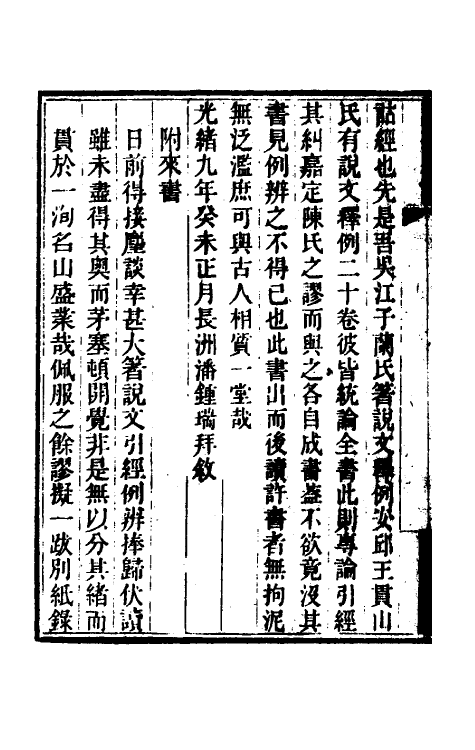 詁經也先是吾吳江子蘭氏箸說文釋例安邱王貫山
氏有說文釋例二十卷彼皆統論全書此則專論引經
其糾嘉定陳氏之謬而與之各自成書葢不欲竟沒其
書見例辨之不得已也此書出而後讀許書者無拘泥
無泛濫庶可與古人相質一堂哉
光緒九年癸未正月長洲潘鍾瑞拜敘
附來書
日前得接麈談幸甚大箸說文引經例辨捧歸伏讀
雖未盡得其奧而茅塞頓開覺非是無以分其緒而
貫於一洵名山盛業哉佩服之餘謬擬一跋別紙錄